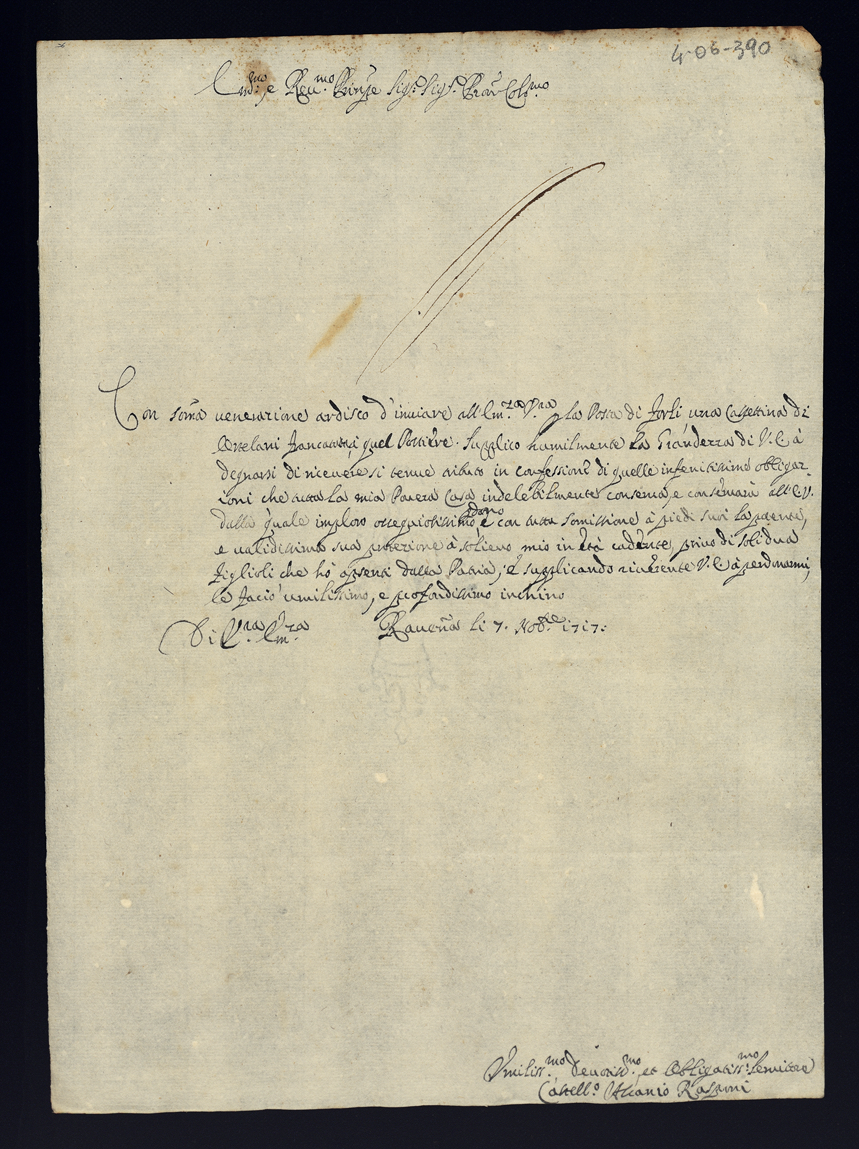 4-06-390
Em.mo e Reu.mo Prinpe Sig.r Sig.r Pron Col.mo
Con som̃a uenerazione ardisco d'inuiare all'Em.za V.ra p la Posta di Forlì una Cassettina di
Ortolani francata, quel Postiere. Supplico humilmente la Grandezza di V. E. à
degnarsi di riceuere si tenue tributo in confessione di quelle infinitissime obligaz-
ioni che tutta la mia Pouera Casa indelebilmente conserua, e conseruarà all'E. V.
dalla quale imploro ossequiosissimo perdono e con tutta somissione à piedi suoi la potente,
e ualidissima sua protezione à solieuo mio in età cadente, priuo di soli dua
figlioli che hò absenti dalla Patria, e supplicando riuerente V. E. à perdonarmi,
le facio umilissimo, e profondissimo inchino
Di V.ra Em.za Rauena li 7. Nob.re 1717:
Vmiliss.mo Deuotiss.mo et Obligatiss.mo Seruitore
Ascanio Rasponi